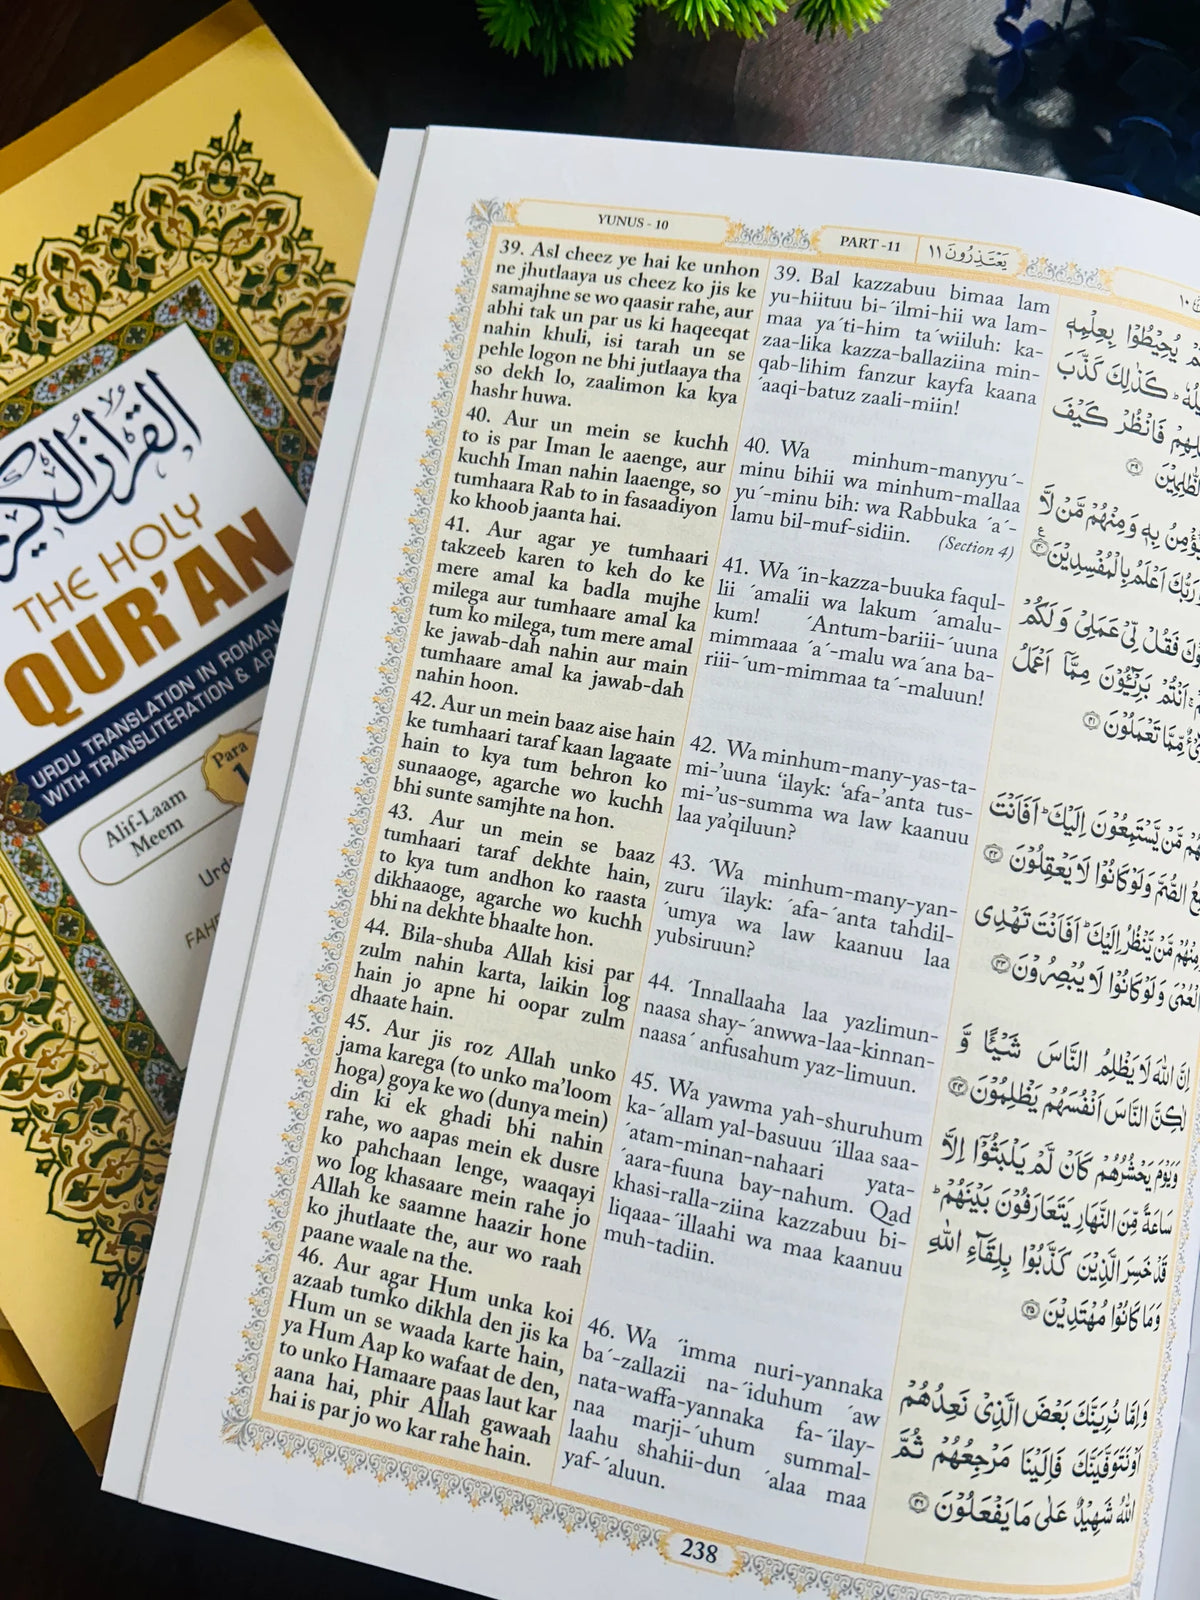 القرآن الكريم
THE HOLY
QUR'AN
URDU TRANSLATION IN ROMAN
WITH TRANSLITERATION &
Alif-Laam
Meem
Para
YUNUS - 10
PART -11
يَعْتَذِرُونَ ١١
39. Asl cheez ye hai ke unhon
ne jhutlaaya us cheez ko jis ke
samajhne se wo qaasir rahe, aur
abhi tak un par us ki haqeeqat
nahin khuli, isi tarah un se
pehle logon ne bhi jutlaaya tha
so dekh lo, zaalimon ka kya
hashr huwa.
40. Aur un mein se kuchh
to is par Iman le aaenge, aur
kuchh Iman nahin laaenge, so
tumhaara Rab to in fasaadiyon
ko khoob jaanta hai.
41. Aur agar ye tumhaari
takzeeb karen to keh do ke
mere amal ka badla mujhe
milega aur tumhaare amal ka
tum ko milega, tum mere amal
ke jawab-dah nahin aur main
tumhaare amal ka jawab-dah
nahin hoon.
42. Aur un mein baaz aise hain
ke tumhaari taraf kaan lagaate
hain to kya tum behron ko
sunaaoge, agarche wo kuchh
bhi sunte samjhte na hon.
43. Aur un mein se baaz
tumhaari taraf dekhte hain,
to kya tum andhon ko raasta
dikhaaoge, agarche wo kuchh
bhi na dekhte bhaalte hon.
44. Bila-shuba Allah kisi par
zulm nahin karta, laikin log
hain jo apne hi oopar zulm
dhaate hain.
45. Aur jis roz Allah unko
jama karega (to unko ma'loom
hoga) goya ke wo (dunya mein)
din ki ek ghadi bhi nahin
rahe, wo aapas mein ek dusre
ko pahchaan lenge, waaqayi
wo log khasaare mein rahe jo
Allah ke saamne haazir hone
ko jhutlaate the, aur wo raah
paane waale na the.
46. Aur agar Hum unka koi
azaab tumko dikhla den jis ka
Hum un se waada karte hain,
ya Hum Aap ko wafaat de den,
to unko Hamaare paas laut kar
aana hai, phir Allah gawaah
hai is par jo wo kar rahe hain.
39. Bal kazzabuu bimaa lam
yu-hiituu bi-´ilmi-hii wa lam-
maa ya´ti-him ta´wiiluh: ka-
zaa-lika kazza-ballaziina min-
qab-lihim fanzur kayfa kaana
´aaqi-batuz zaali-miin!
40. Wa minhum-manyyu´-
minu bihii wa minhum-mallaa
yu´-minu bih: wa Rabbuka ´a´-
lamu bil-muf-sidiin. (Section 4)
41. Wa ´in-kazza-buuka faqul-
lii ´amalii wa lakum ´amalu-
kum! ´Antum-bariii-´uuna
mimmaaa ´a´-malu wa´ana ba-
riii-´um-mimmaa ta´-maluun!
42. Wa minhum-many-yas-ta-
mi-´uuna ´ilayk: ‘afa-’anta tus-
mi-’us-summa wa law kaanuu
laa ya’qiluun?
43. ´Wa minhum-many-yan-
zuru ´ilayk: ´afa-´anta tahdil-
´umya wa law kaanuu laa
yubsiruun?
44. ´Innallaaha laa yazlimun-
naasa shay-´anwwa-laa-kinnan-
naasa´ anfusahum yaz-limuun.
45. Wa yawma yah-shuruhum
ka-´allam yal-basuuu ´illaa saa-
´atam-minan-nahaari yata-
´aara-fuuna bay-nahum. Qad
khasi-ralla-ziina kazzabuu bi-
liqaaa-´illaahi wa maa kaanuu
muh-tadiin.
46. Wa ´imma nuri-yannaka
ba´-zallazii na-´iduhum ´aw
nata-waffa-yannaka fa-´ilay-
naa marji-´uhum summal-
laahu shahii-dun ´alaa maa
yaf-´aluun.
يُحِيْطُوْا بِعِلْمِهٖ
كَذٰلِكَ كَذَّبَ
فَانْظُرْ كَيْفَ
الظّٰلِمِيْنَ ٣٩
بِهٖ وَمِنْهُمْ مَّنْ لَّا
اَعْلَمُ بِالْمُفْسِدِيْنَ ٤٠
فَقُلْ لِّيْ عَمَلِيْ وَلَكُمْ
اَنْتُمْ بَرِيْٓـُٔوْنَ مِمَّآ اَعْمَلُ
مِّمَّا تَعْمَلُوْنَ ٤١
مَّنْ يَّسْتَمِعُوْنَ اِلَيْكَ ؕ اَفَاَنْتَ
الصُّمَّ وَلَوْ كَانُوْا لَا يَعْقِلُوْنَ ٤٢
مَّنْ يَّنْظُرُ اِلَيْكَ ؕ اَفَاَنْتَ تَهْدِى
الْعُمْىَ وَلَوْ كَانُوْا لَا يُبْصِرُوْنَ ٤٣
اِنَّ اللّٰهَ لَا يَظْلِمُ النَّاسَ شَيْـًٔا وَّ
لٰكِنَّ النَّاسَ اَنْفُسَهُمْ يَظْلِمُوْنَ ٤٤
وَيَوْمَ يَحْشُرُهُمْ كَاَنْ لَّمْ يَلْبَثُوْٓا اِلَّا
سَاعَةً مِّنَ النَّهَارِ يَتَعَارَفُوْنَ بَيْنَهُمْ ؕ
قَدْ خَسِرَ الَّذِيْنَ كَذَّبُوْا بِلِقَآءِ اللّٰهِ
وَمَا كَانُوْا مُهْتَدِيْنَ ٤٥
وَاِمَّا نُرِيَنَّكَ بَعْضَ الَّذِيْ نَعِدُهُمْ
اَوْ نَتَوَفَّيَنَّكَ فَاِلَيْنَا مَرْجِعُهُمْ ثُمَّ
اللّٰهُ شَهِيْدٌ عَلٰى مَا يَفْعَلُوْنَ ٤٦
238